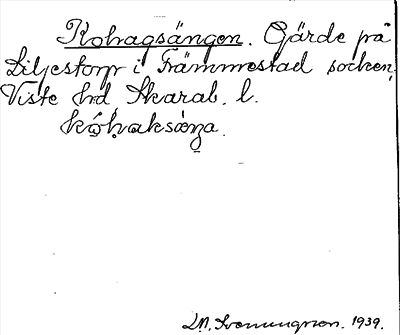 Kohagsängen. Gärde på
Liljestorp i Främmestad socken,
Viste hd Skarab. l.
kóhaksäŋa.
1939.